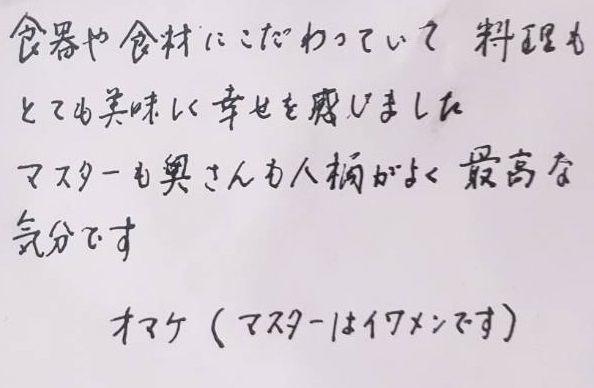 食器や食材にこだわっていて 料理も
とても美味しく幸せを感じました
マスターも奥さんも人柄がよく 最高な
気分です
オマケ (マスターはイワメンです)